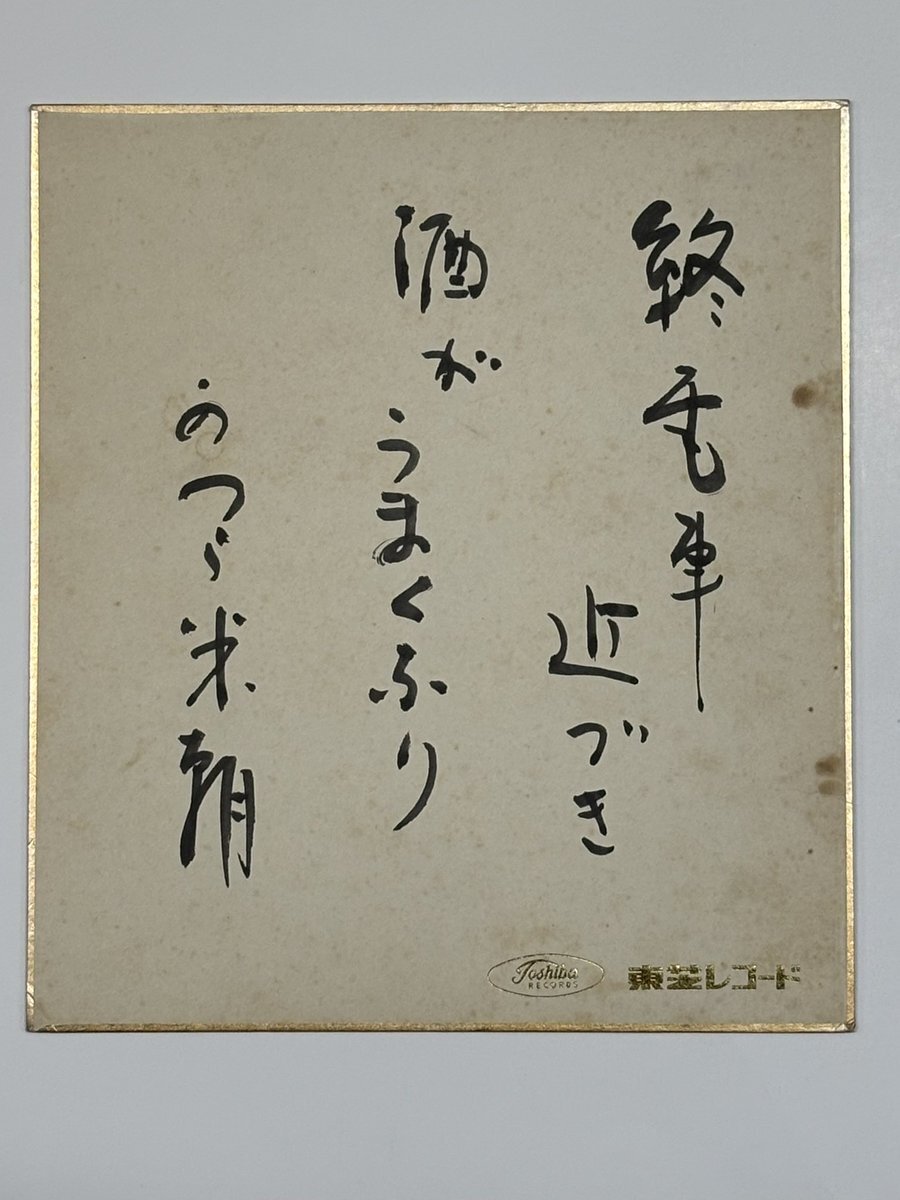 終電車
近づき
酒が
うまくなり
かつら米朝
Toshiba
RECORDS
東芝レコード